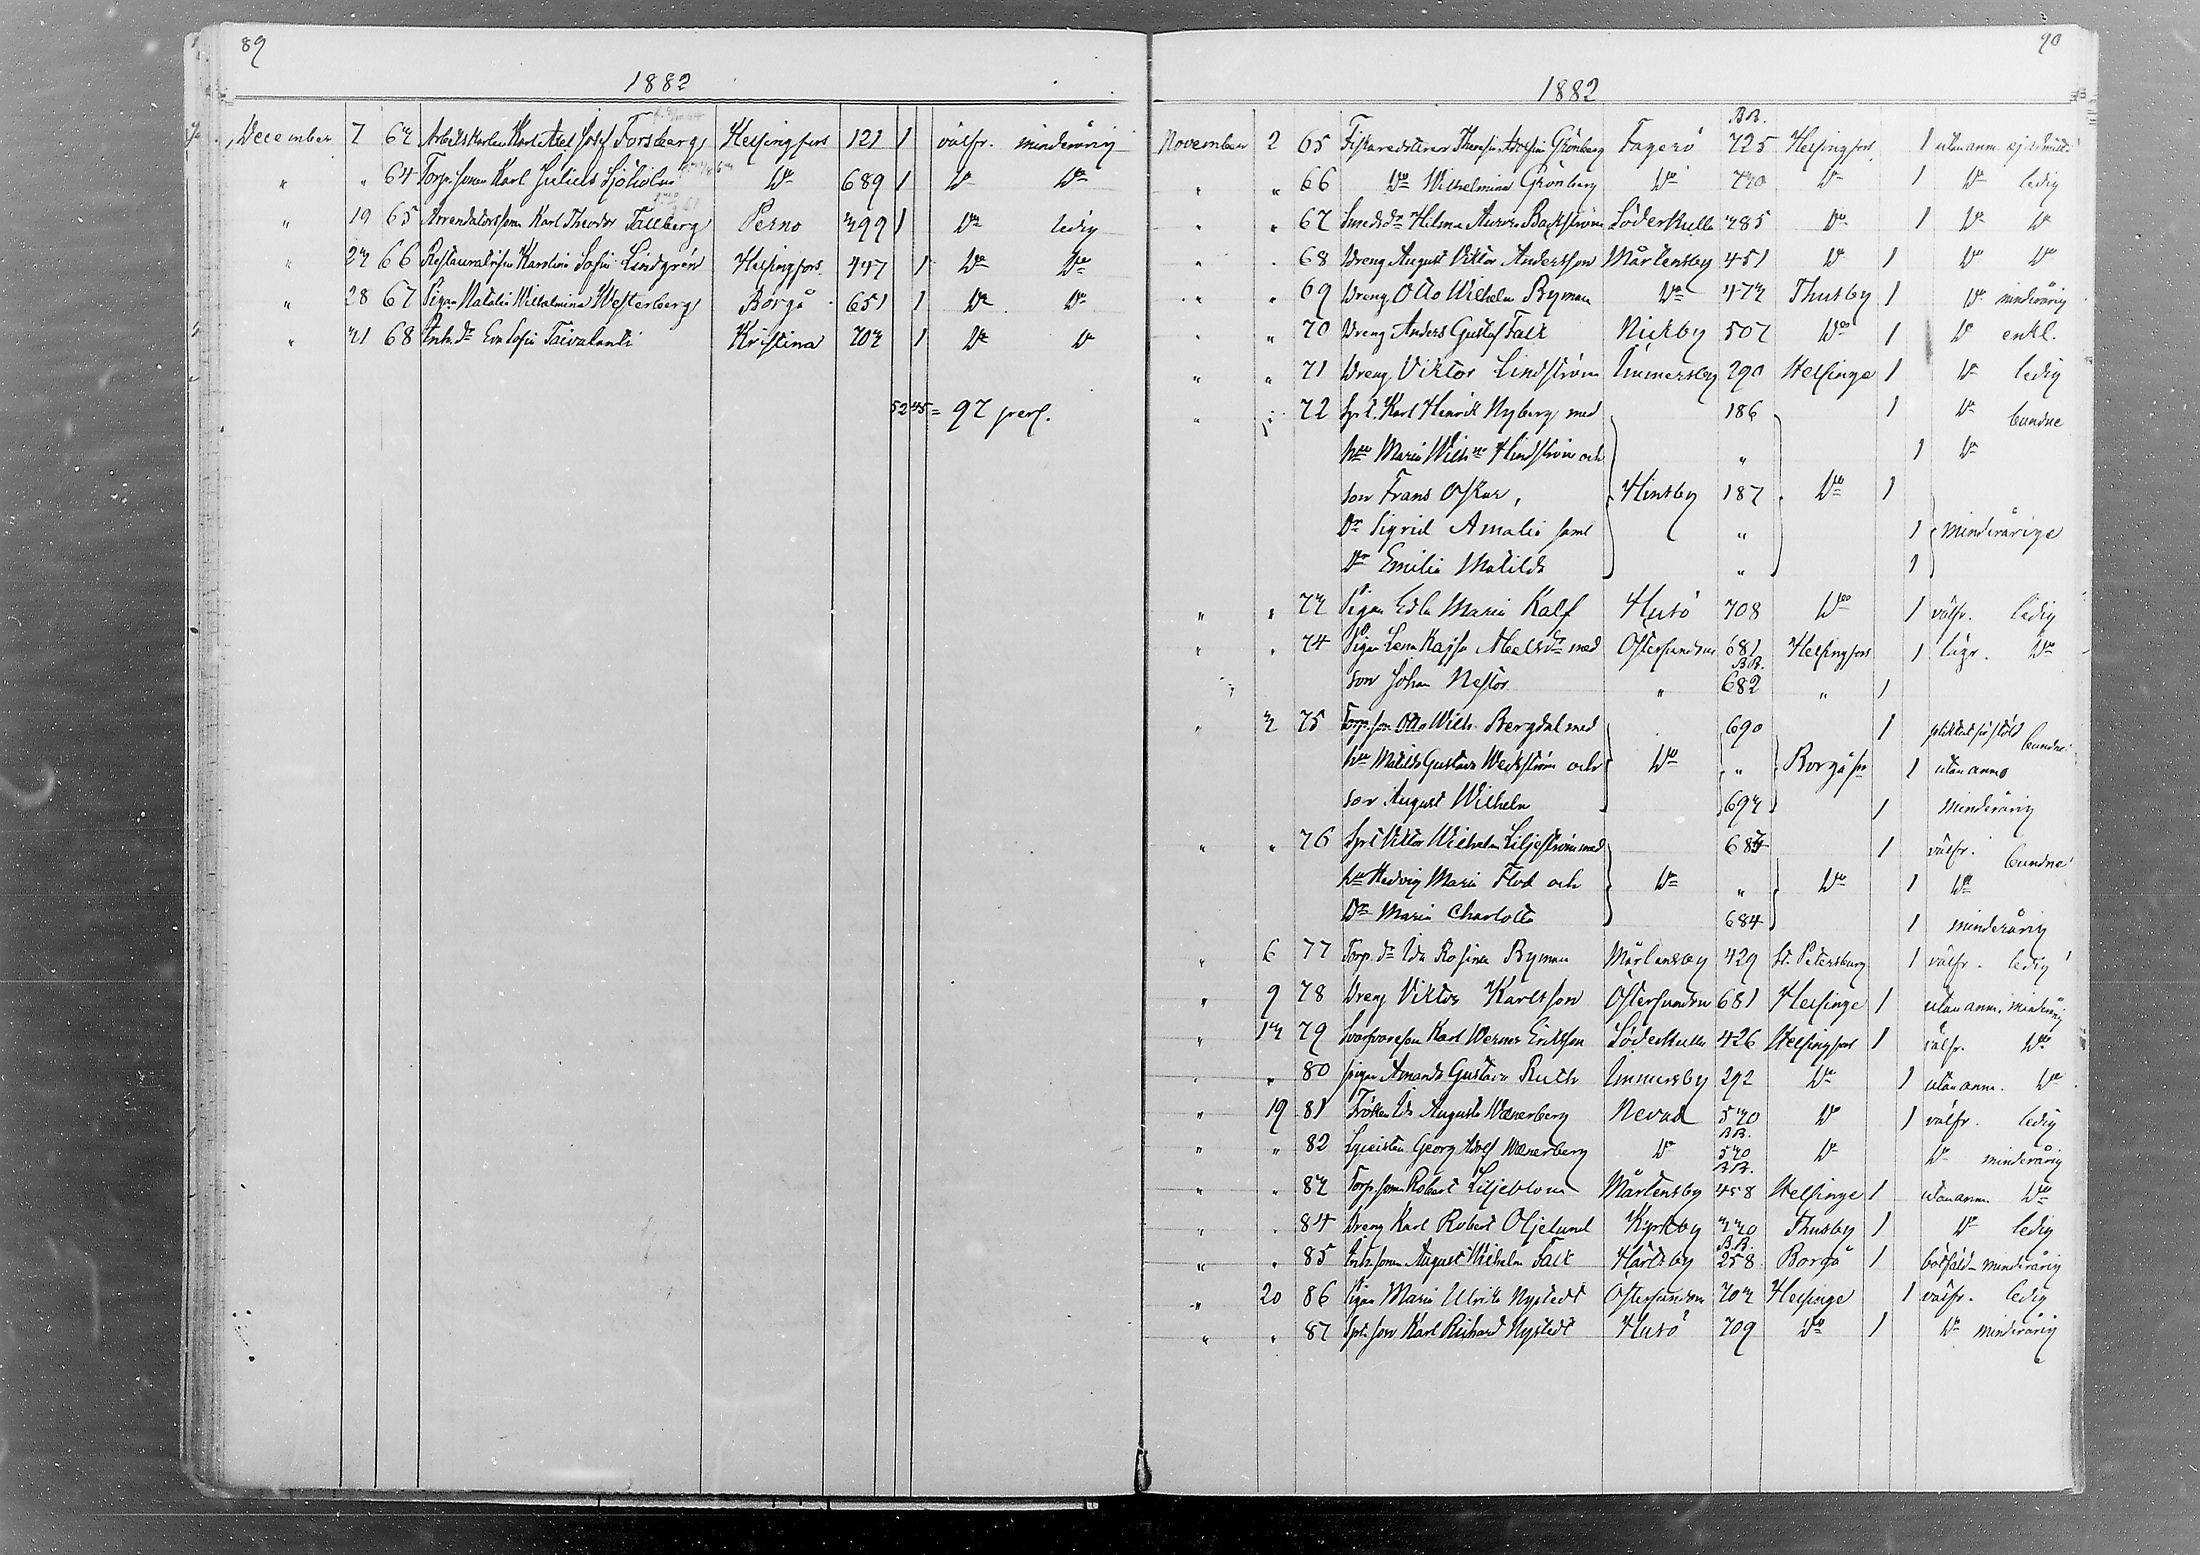 89
1882
December 7 63 Arbetskarlen Karl Axel Josef Forsberg Helsingfors 121 1 välfr. minderårig
" " 64 Torp. sonen Karl Julius Sjöholm Do 689 1 Do Do
" 19 65 Arrendatorssonen Karl Theodor Tallberg Perno 399 1 Do ledig
" 23 66 Karolina Sofia Lindgrén Helsingfors 447 1 Do Do
" 28 67 Pigan Natalia Wilhelmina Westerberg Borgå 651 1 Do Do
" 31 68 Inh. dr Eva Sofia Taivalanti Kristina 703 1 Do Do
52 45 = 97 pers.
90
1882
B.B.
November 2 65 Fiskaredottren Theresia Grönberg Fagerö 725 Helsingfors 1 utan anm. ej admitt.
" " 66 Do Wilhelmina Grönberg Do 730 Do 1 Do ledig
" " 67 Smedsdr Hilma Aurora Backström Söderkulla 385 Do 1 Do Do
" " 68 Dreng August Viktor Andersson Mårtensby 451 Do 1 Do Do
" " 69 Dreng Otto Wilhelm Ryman Do 473 Thusby 1 Do minderårig
" " 70 Dreng Anders Gustaf Falk Nickby 507 Do 1 Do enkl.
" " 71 Dreng Viktor Lindström Immersby 290 Helsinge 1 Do ledig
" " 72 Karl Henrik Nyberg med 186 1 Do bundne
hu Maria Wilhna Lindström och " 1 Do
son Frans Oskar, Hindsby 187 Do 1
Dr Sigrid Amalia samt " 1 minderårige
Dr Emilia Matilda " 1
" " 73 Pigan Edla Maria Kalf Husö 708 Do 1 välfr. ledig
" " 74 Pigan Lena Kajsa Abelsdr med Östersundom 681 Helsingfors 1 lägr. Do
B.B.
son Johan Nestor " 682 " 1
" 3 75 Torp. son Otto Wilh. Bergdal med 690 1 pliktat för stöld bundne
hu Matilda Gustava Weckström och Do " Borgå sn 1 utan anm.
son August Wilhelm 693 1 minderårig
" " 76 Viktor Wilhelm Liljeström med 684 1 välfr. bundne
hu Hedvig Maria Flod och Do " Do 1 Do
Dr Maria Charlotta 684 1 minderårig
" 6 77 Torp. dr Ida Rosina Ryman Mårtensby 429 St. Petersburg 1 välfr. ledig
" 9 78 Dreng Viktor Karlsson Östersundom 681 Helsinge 1 utan anm. minderårig
" 13 79 Svarfvareson Karl Werner Eriksson Söderkulla 426 Helsingfors 1 välfr. Do
" " 80 pigan Amanda Gustava Ruth Immersby 292 Do 1 utan anm. Do
" 19 81 Fröken Ida Augusta Wænerberg Nevas 530 Do 1 välfr. ledig
B.B.
" " 82 Lyceisten Georg Adolf Wænerberg Do 530 Do Do minderårig
B.B.
" " 83 Torp. sonen Robert Liljeblom Mårtensby 458 Helsinge 1 utan anm. Do
" " 84 Dreng Karl Robert Oljelund Kyrkby 330 Thusby 1 Do ledig
B.B.
" " 85 Inh. sonen August Wilhelm Falk Hardsby 258 Borgå 1 botfäld minderårig
" 20 86 Pigan Maria Ulrika Nystedt Östersundom 703 Helsinge 1 välfr. ledig
" " 87 son Karl Richard Nystedt Husö 709 Do 1 Do minderårig